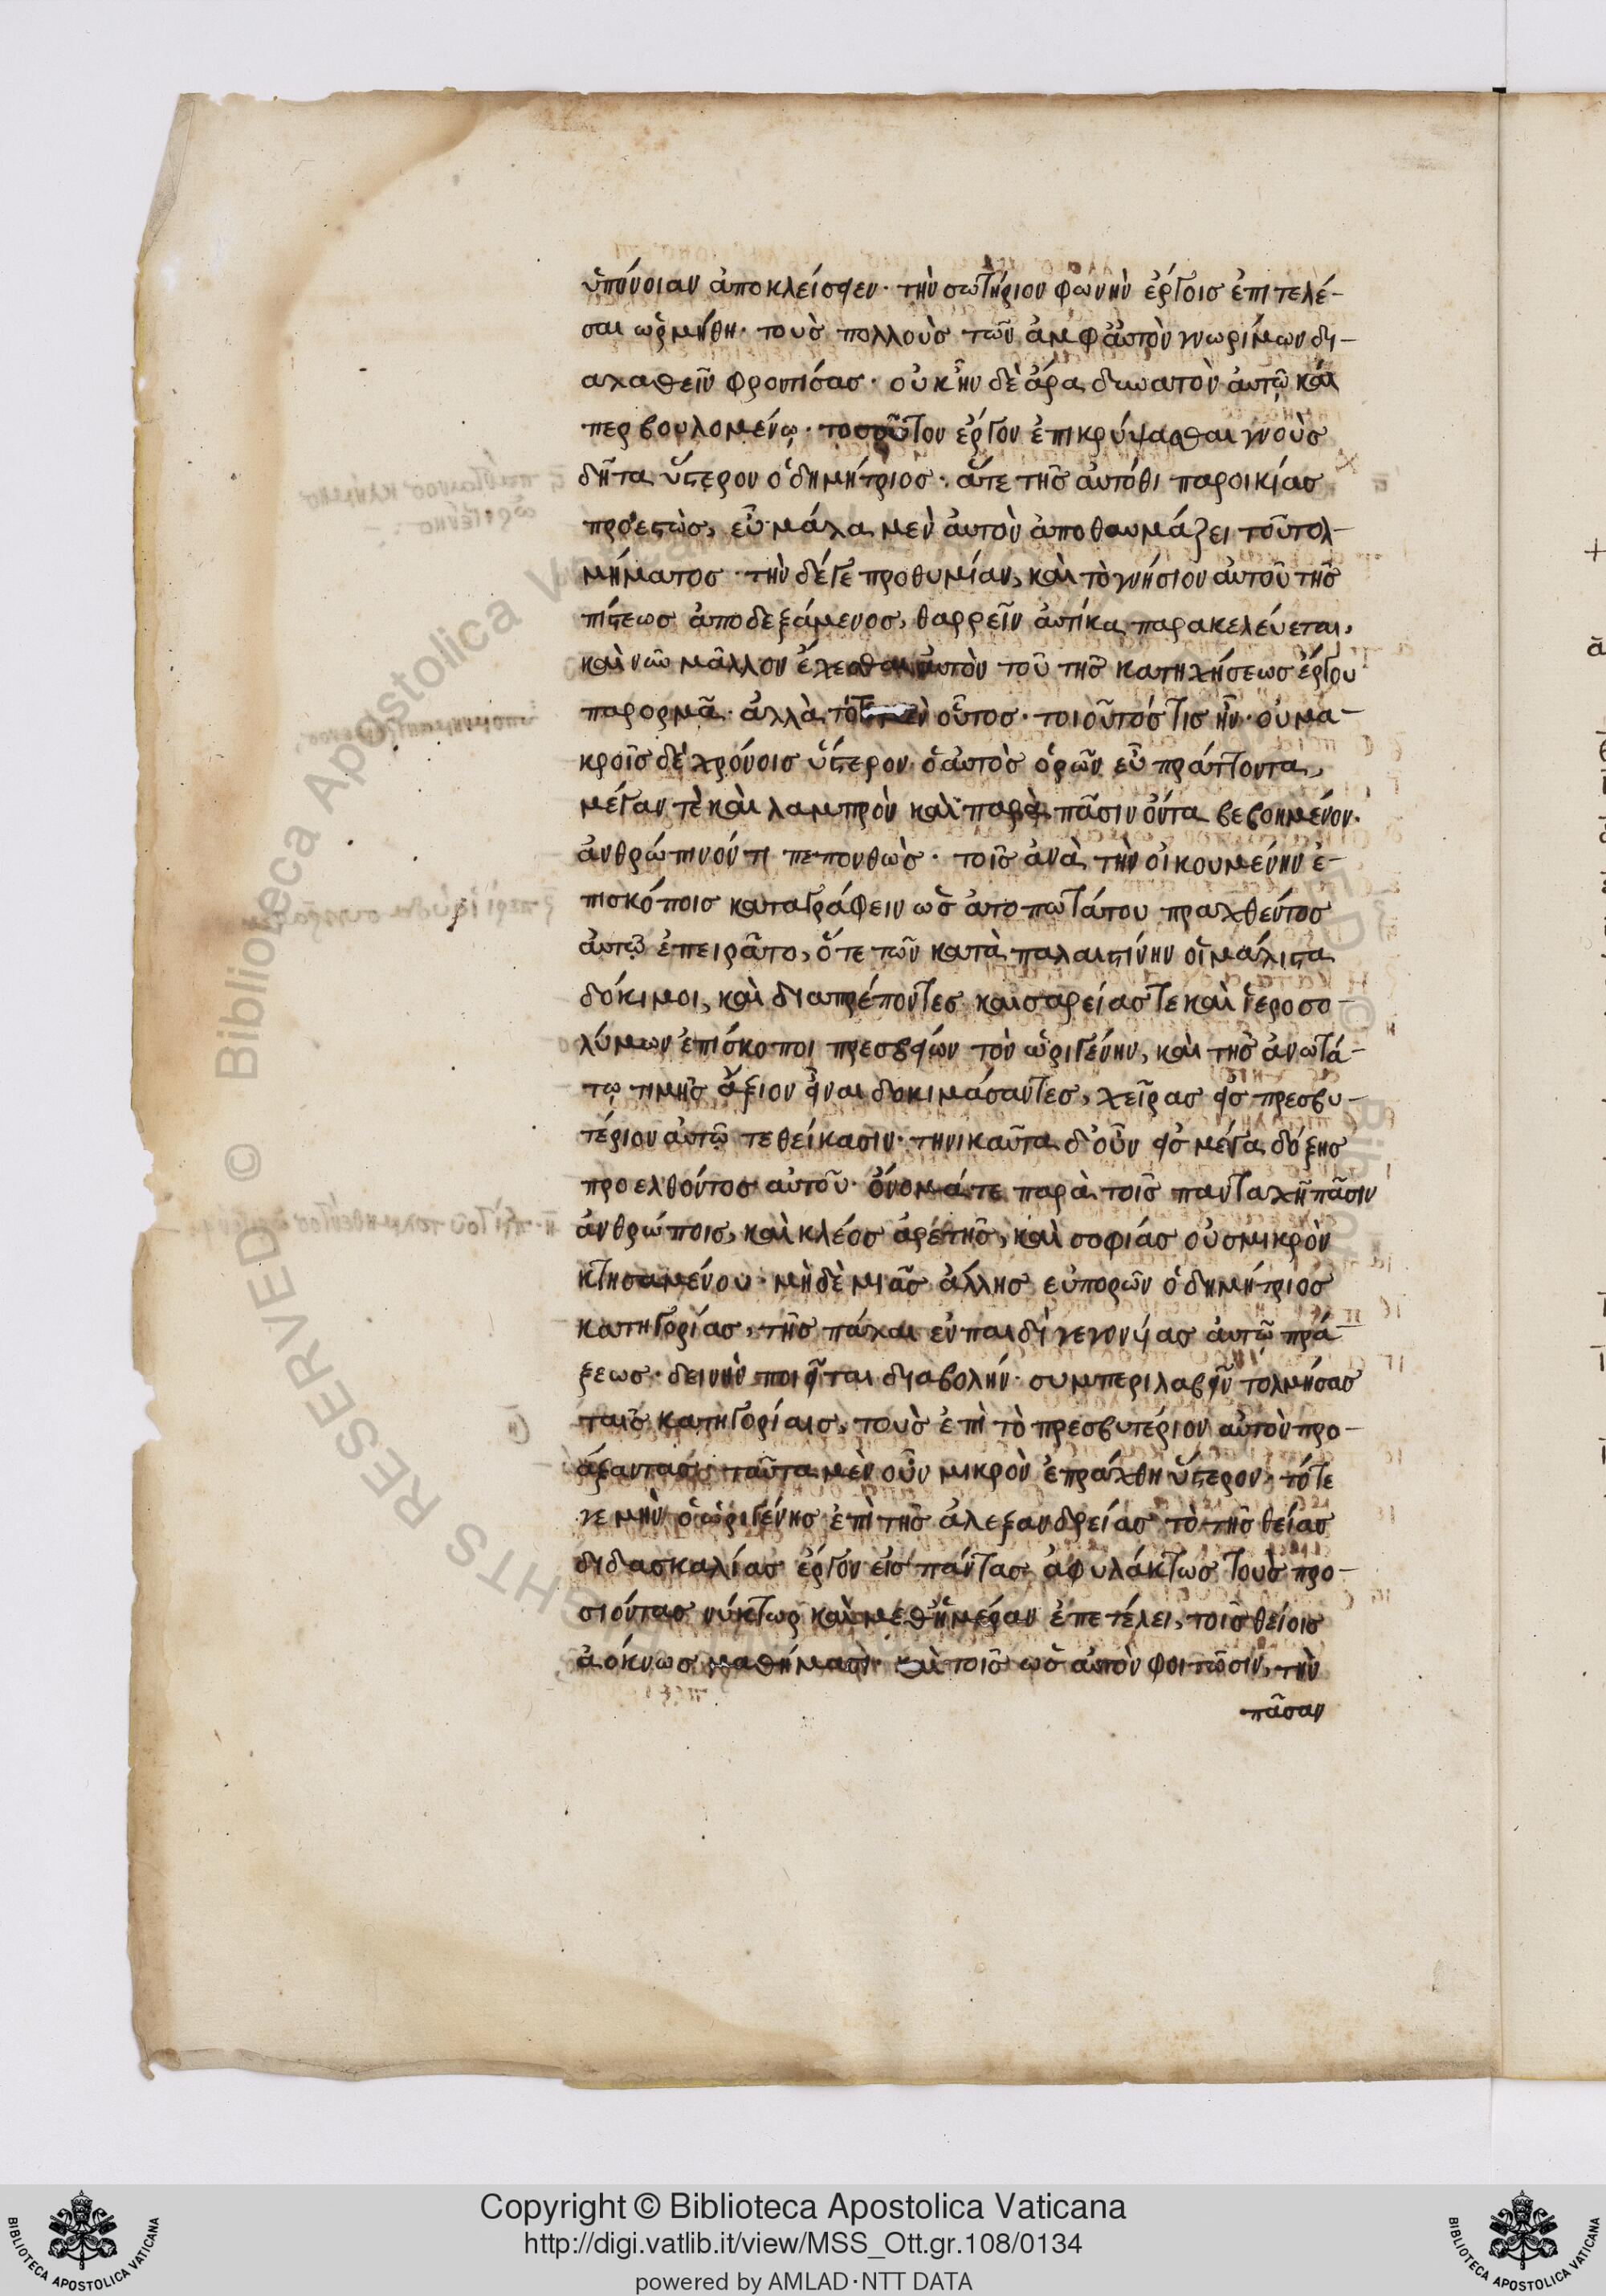 ὑπόνοιαν ἀποκλείσειεν· τὴν σωτήριον φωνὴν ἔργοις ἐπιτελέ-
σαι ὡρμήθη· τοὺς πολλοὺς τῶν ἀμφαὐτὸν γνωρίμων δι-
αλαθεῖν φροντίσας· οὐκ ἦν δὲ ἄρα δυνατὸν αὐτῷ καί
περ βουλομένῳ· τοσοῦτον ἔργον ἐπικρύψασθαι γνοὺς
δῆτα ὕστερον ὁ δημήτριος· ἅτε τῆς αὐτόθι παροικίας
προεστὼς, εὖ μάλα μὲν αὐτὸν ἀποθαυμάζει τοῦ τολ-
μήματος· τὴν δέγε προθυμίαν, καὶ τὸ γνήσιον αὐτοῦ τῆς
πίστεως ἀποδεξάμενος, θαρρεῖν αὐτίκα παρακελεύεται,
καὶ νῦν μᾶλλον ἔχεσθαι αὐτὸν τοῦ τῆς κατηχήσεως ἔργου
παρορμᾶ· ἀλλὰ τότε μὲν οὗτος· τοιοῦτός τις ἦν· οὐ μα-
κροῖς δὲ χρόνοις ὕστερον ὁ αὐτὸς ὁρῶν εὖ πράττοντα,
μέγαν τὲ καὶ λαμπρὸν καὶ παρὰ πᾶσιν ὄντα βεβοημένον·
ἀνθρώπινόν τι πεπονθὼς· τοῖς ἀνὰ τὴν οἰκουμένην ἐ-
πισκόποις καταγράφειν ὡς ἀτοπωτάτου πραχθέντος
αὐτῷ ἐπειρᾶτο, ὅτε τῶν κατὰ παλαιστίνην οἱ μάλιστα
δόκιμοι, καὶ διαπρέποντες καισαρείας τε καὶ ἱεροσο-
λύμων ἐπίσκοποι πρεσβείων τὸν ὠριγένην, καὶ τῆς ἀνωτά-
τω τιμῆς ἄξιον εἶναι δοκιμάσαντες, χεῖρας εἰς πρεσβυ-
τέριον αὐτῷ τεθείκασιν· τηνικαῦτα δ' οὖν εἰς μέγα δόξης
προελθόντος αὐτοῦ· ὄνομά τε παρὰ τοῖς πανταχῆ πᾶσιν
ἀνθρώποις, καὶ κλέος ἀρετῆς, καὶ σοφίας οὐ σμικρὸν
κτησαμένου· μὴδὲ μιᾶς ἄλλης εὐπορῶν ὁ δημήτριος
κατηγορίας, τῆς πάλαι ἐν παιδὶ γεγονυίας αὐτῷ πρά-
ξεως· δεινὴν ποιεῖται διαβολήν· συμπεριλαβεῖν τολμήσας
ταῖς κατηγορίαις, τοὺς ἐπὶ τὸ πρεσβυτέριον αὐτὸν προ-
άξαντας· ταῦτα μὲν οὖν μικρὸν ἐπράχθη ὕστερον· τότε
γε μὴν ὁ ὠριγένης ἐπὶ τῆς ἀλεξανδρείας τὸ τῆς θείας
διδασκαλίας ἔργον εἰς πάντας ἀφυλάκτως τοὺς προ-
σιόντας νύκτωρ καὶ μεθημέραν ἐπετέλει, τοῖς θείοις
ἀόκνως μαθήμασι· καὶ τοῖς ὡς αὐτὸν φοιτῶσιν, τὴν
πᾶσαν
© Biblioteca Apostolica Vaticana
RIGHTS RESERVED
Copyright © Biblioteca Apostolica Vaticana
http://digi.vatlib.it/view/MSS_Ott.gr.108/0134
powered by AMLAD·NTT DATA
BIBLIOTECA APOSTOLICA VATICANA
BIBLIOTECA APOSTOLICA VATICANA